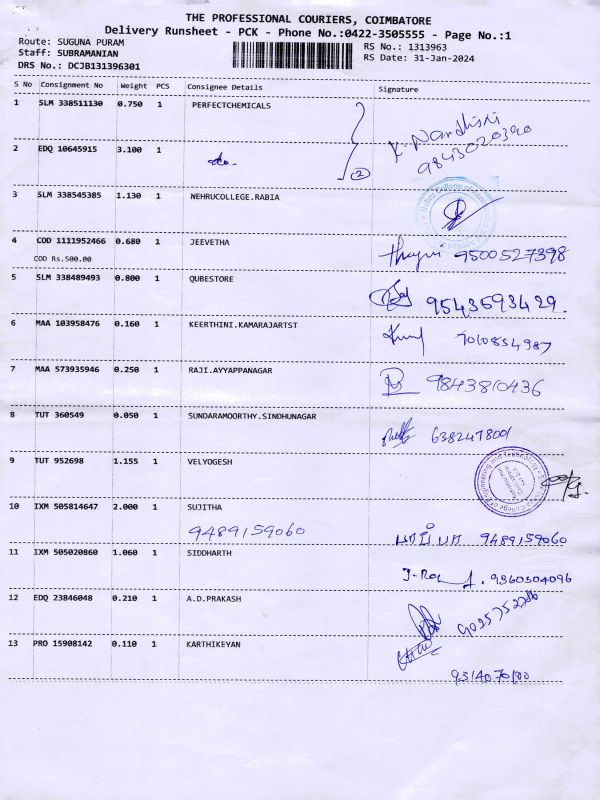 THE PROFESSIONAL COURIERS, COIMBATORE
Delivery Runsheet - PCK - Phone No.:0422-3505555 - Page No.:1
Route: SUGUNA PURAM RS No.: 1313963
Staff: SUBRAMANIAN RS Date: 31-Jan-2024
DRS No.: DCJB131396301
S No Consignment No Weight PCS Consignee Details Signature
1 SLM 338511130 0.750 1 PERFECTCHEMICALS
K. Nandhini
9843020390
2 EDQ 10645915 3.100 1 do. 2
3 SLM 338545385 1.130 1 NEHRUCOLLEGE.RABIA
4 COD 1111952466 0.680 1 JEEVETHA
COD Rs.500.00 9500527398
5 SLM 338489493 0.800 1 QUBESTORE
9543593429.
6 MAA 103958476 0.160 1 KEERTHINI.KAMARAJARTST
7010854987
7 MAA 573935946 0.250 1 RAJI.AYYAPPANAGAR
9843810436
8 TUT 360549 0.050 1 SUNDARAMOORTHY.SINDHUNAGAR
6382478001
9 TUT 952698 1.155 1 VELYOGESH
10 IXM 505814647 2.000 1 SUJITHA
9489159060 9489159060
11 IXM 505020860 1.060 1 SIDDHARTH
9360504096
12 EDQ 23846048 0.210 1 A.D.PRAKASH
13 PRO 15908142 0.110 1 KARTHIKEYAN